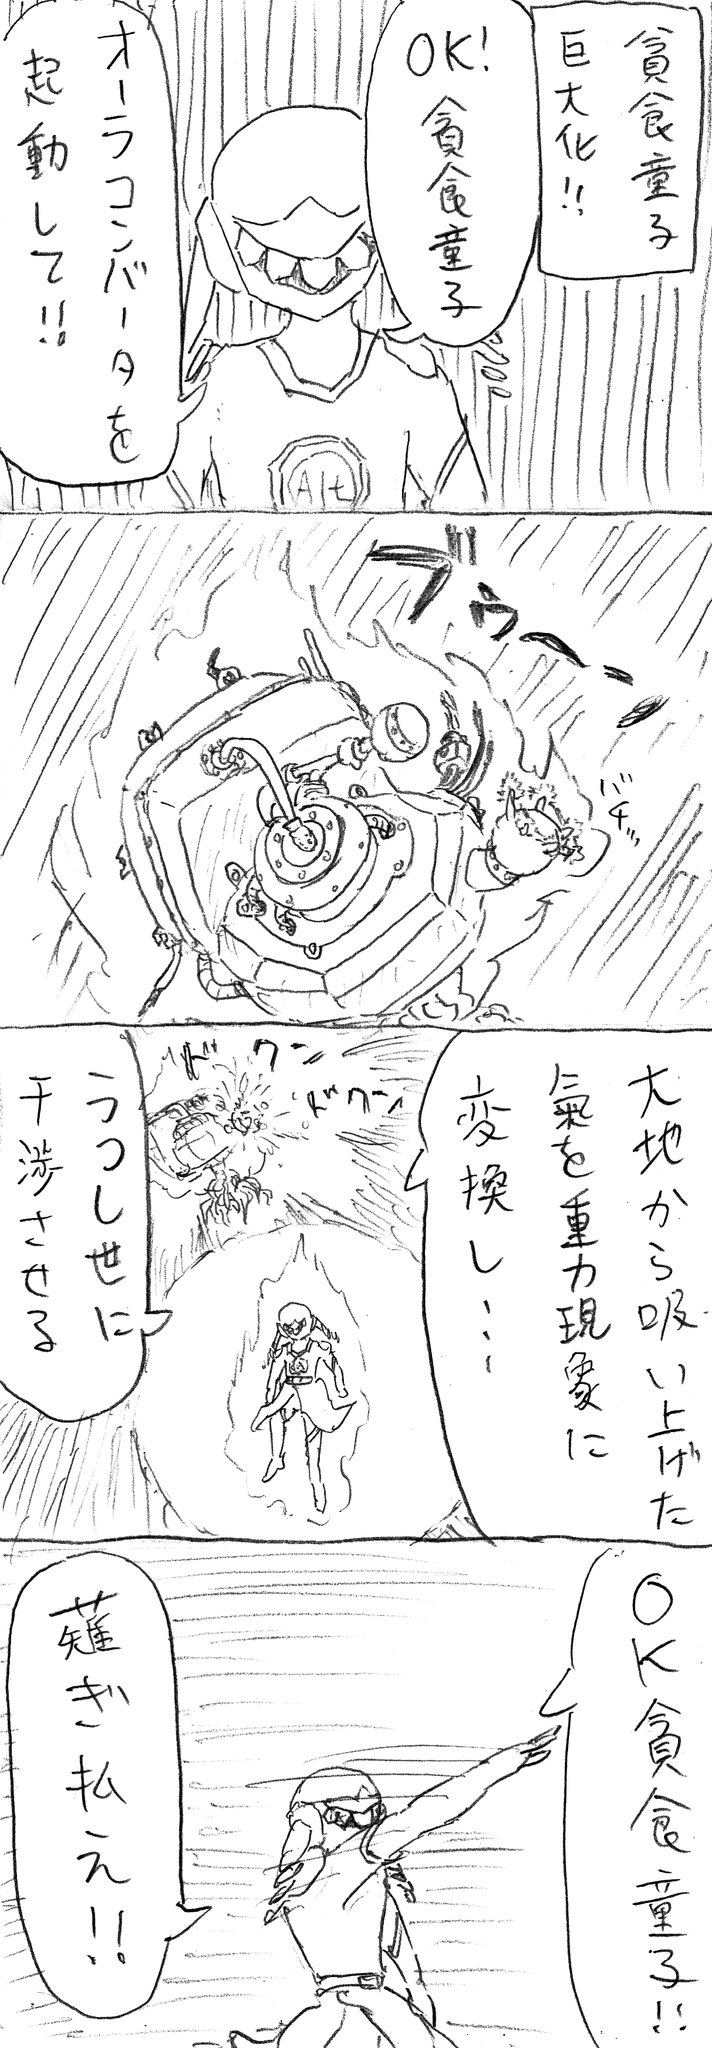 貪食童子
巨大化!!
OK!
貪食童子
オーラコンバータを
起動して!!
Alt
ブゥーン
バチッ
大地から吸い上げた
氣を重力現象に
変換し…
ドクン
ドクン
うつし世に
干渉させる
OK貪食童子!!
薙ぎ払え!!